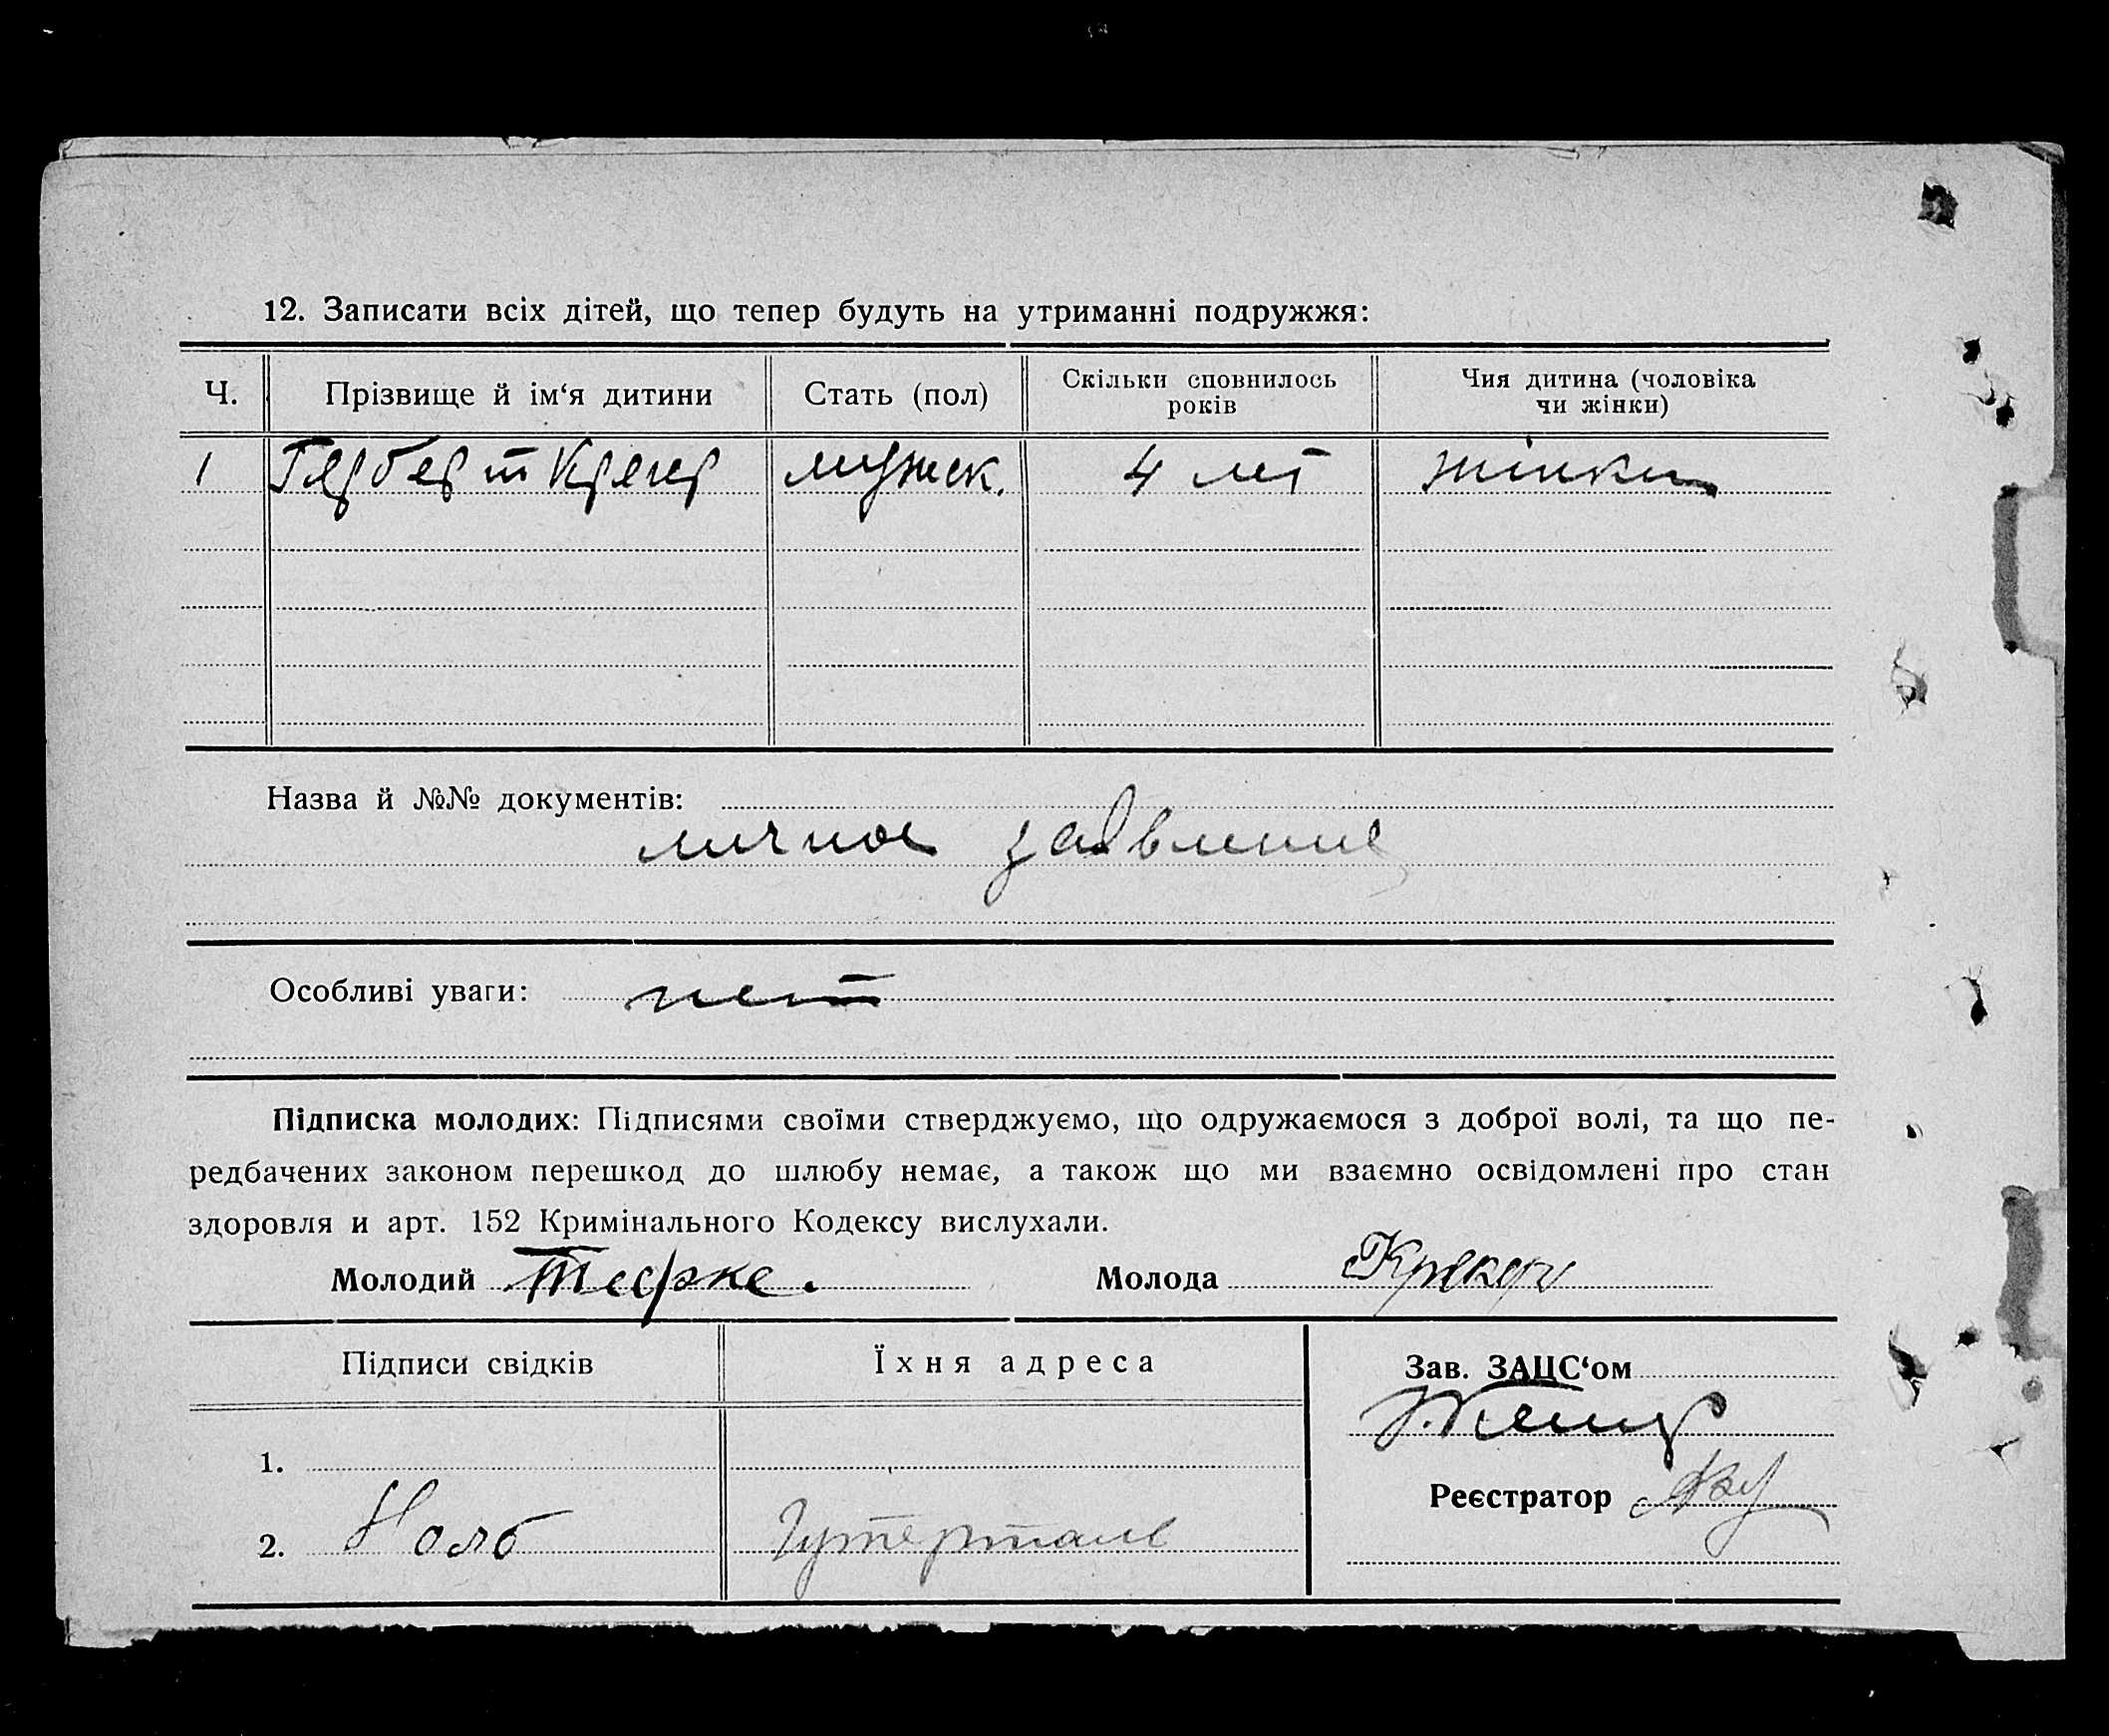 12. Записати всіх дітей, що тепер будуть на утриманні подружжя:
Ч. Прізвище й ім‘я дитини Стать (пол) Скільки сповнилось років Чия дитина (чоловіка чи жінки)
1 Герберт Крегер мужск. 4 лет жінки
Назва й №№ документів:
личное заявление
Особливі уваги: нет
Підписка молодих: Підписями своїми стверджуємо, що одружаємося з доброї волі, та що пе-
редбачених законом перешкод до шлюбу немає, а також що ми взаємно освідомлені про стан
здоровля и арт. 152 Кримінального Кодексу вислухали.
Молодий Тефке. Молода
Підписи свідків Їхня адреса Зав. ЗАЦС‘ом
1.
Реєстратор
2. Нолб Гутерталь